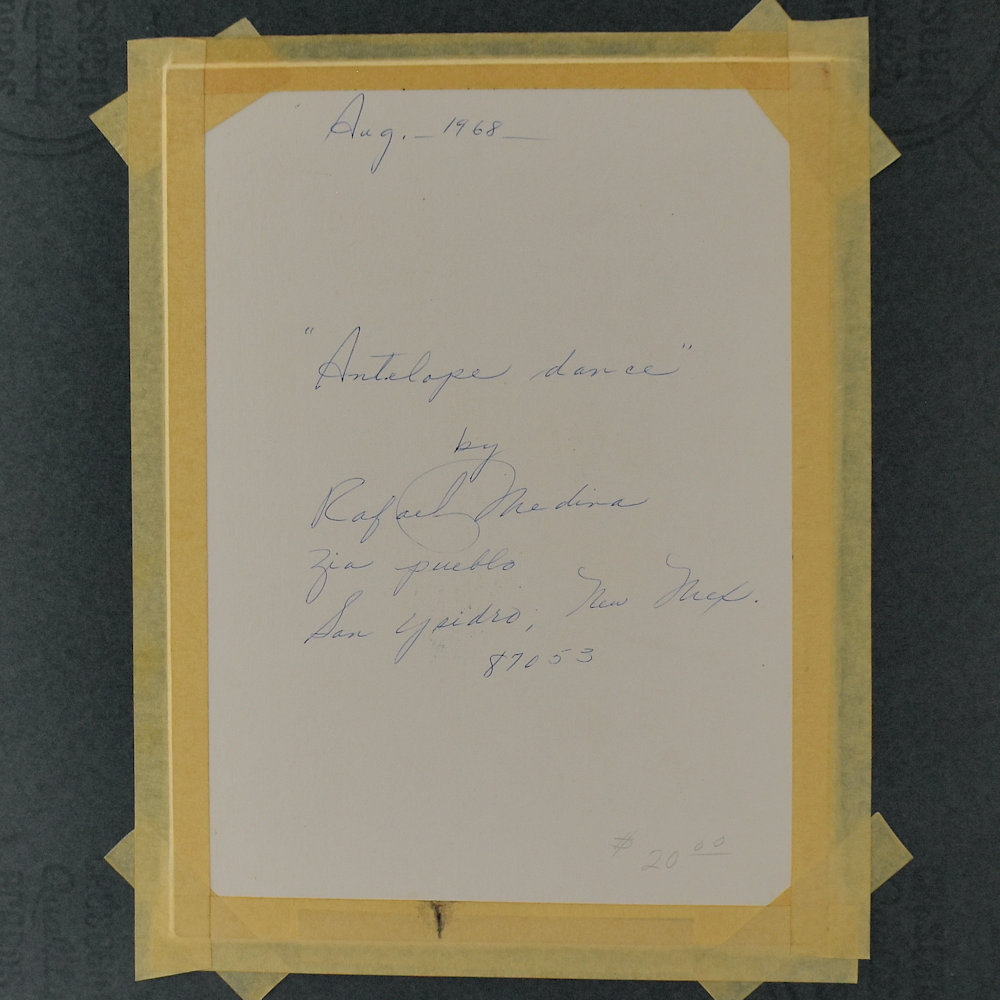 Aug. – 1968 –
"Antelope dance"
by
Rafael Medina
Zia pueblo
San Ysidro, New Mex.
87053
$ 20 00